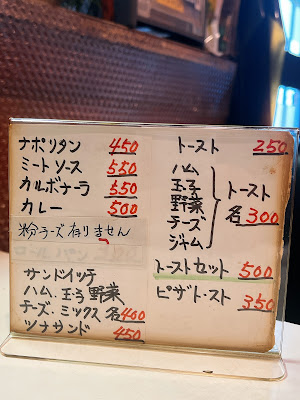 ナポリタン 450
ミートソース 550
カルボナーラ 550
カレー 500
粉チーズ有りません
サンドイッチ
ハム、玉子、野菜
チーズ・ミックス 各400
ツナサンド 450
トースト 250
ハム
玉子
野菜
チーズ
ジャム
トースト
各300
トーストセット 500
ピザトースト 350